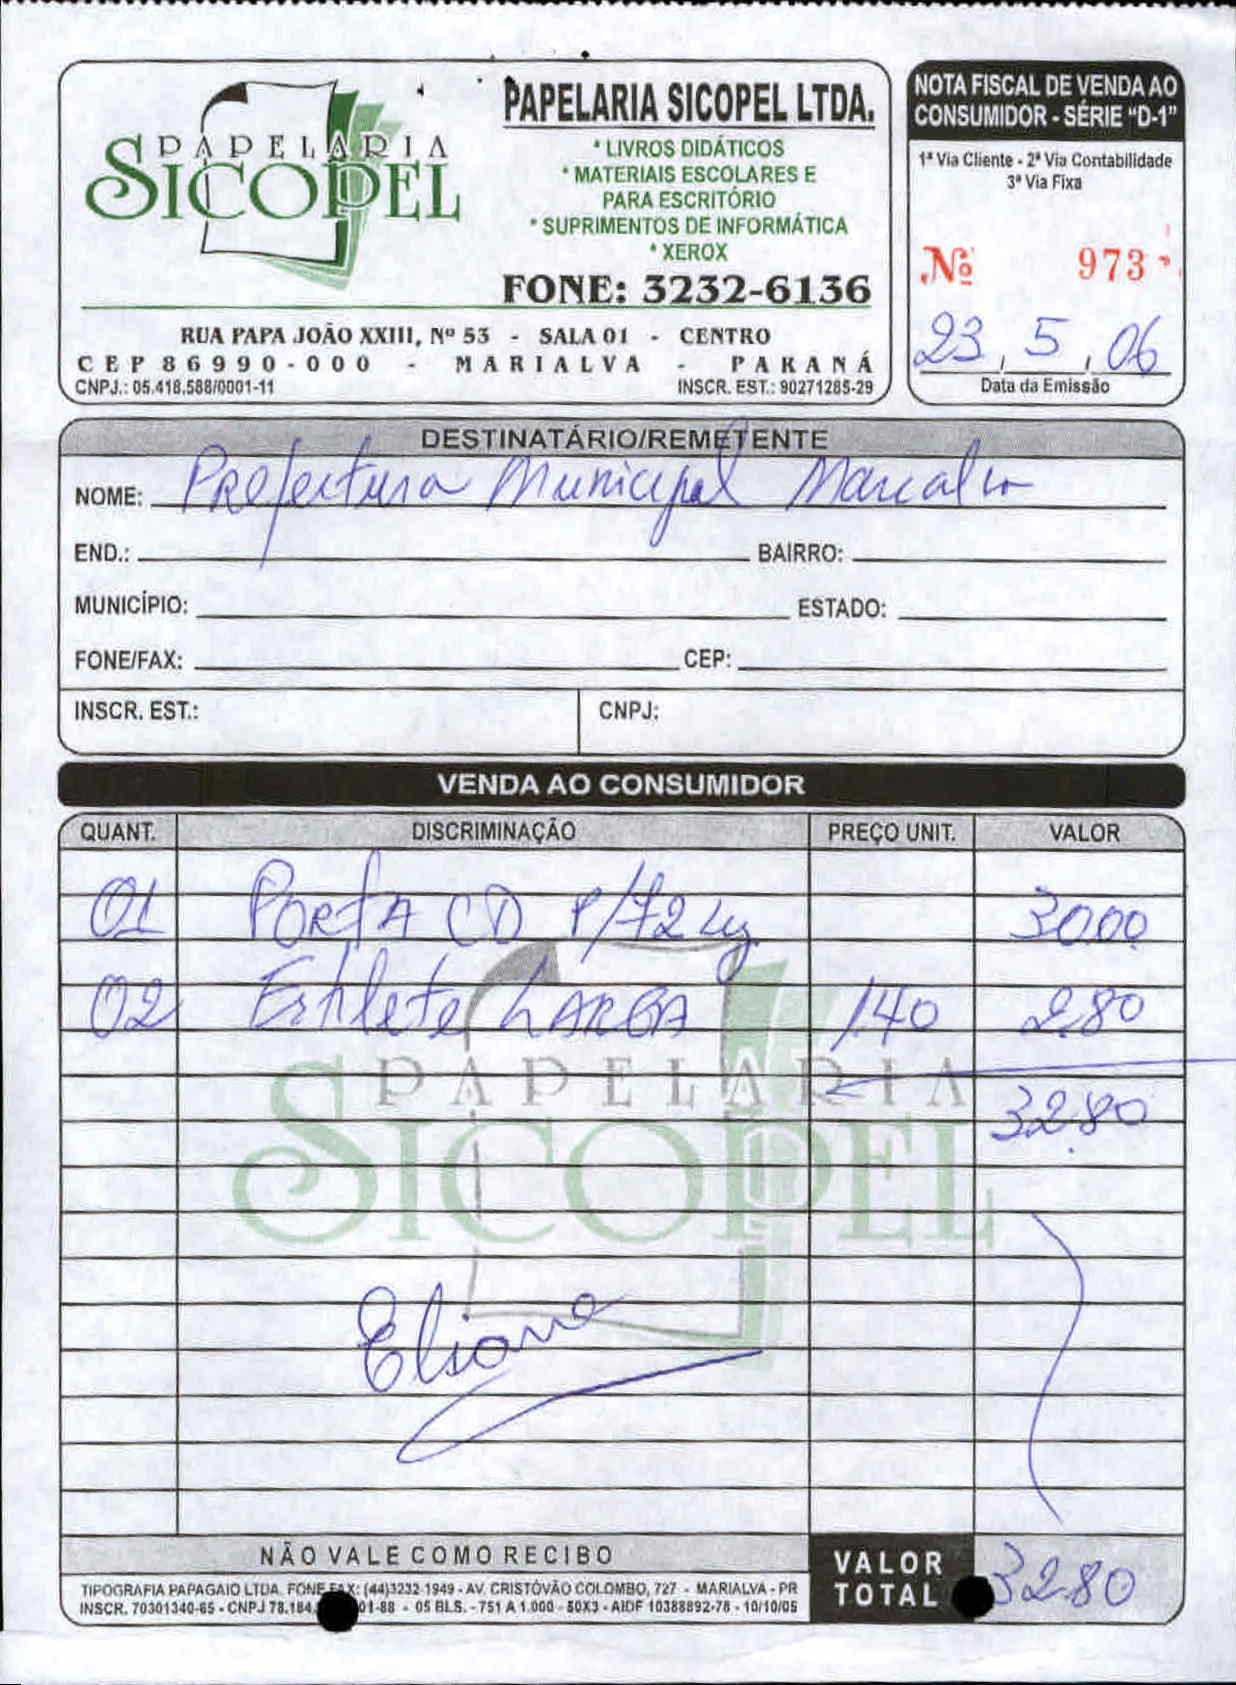 PAPELARIA
SICOPEL
PAPELARIA SICOPEL LTDA.
* LIVROS DIDÁTICOS
* MATERIAIS ESCOLARES E
PARA ESCRITÓRIO
* SUPRIMENTOS DE INFORMÁTICA
* XEROX
FONE: 3232-6136
RUA PAPA JOÃO XXIII, Nº 53 - SALA 01 - CENTRO
CEP 86990-000 - MARIALVA - PARANÁ
CNPJ.: 05.418.588/0001-11 INSCR. EST.: 90271285-29
NOTA FISCAL DE VENDA AO
CONSUMIDOR - SÉRIE "D-1"
1ª Via Cliente - 2ª Via Contabilidade
3ª Via Fixa
Nº 973
23, 5, 06
Data da Emissão
DESTINATÁRIO/REMETENTE
NOME: Prefectura Municipal
END.: BAIRRO:
MUNICÍPIO: ESTADO:
FONE/FAX: CEP:
INSCR. EST.: CNPJ:
VENDA AO CONSUMIDOR
QUANT. DISCRIMINAÇÃO PREÇO UNIT. VALOR
01 PORTA CD P/72 30.00
02 Estilete LARGA 1,40 2,80
PAPELARIA
32.80
SICOPEL
Eliane
NÃO VALE COMO RECIBO
VALOR TOTAL 32.80
TIPOGRAFIA PAPAGAIO LTDA. FONE FAX: (44)3232-1949 - AV. CRISTÓVÃO COLOMBO, 727 - MARIALVA - PR
INSCR. 70301340-65 - CNPJ 78.184. 01-88 - 05 BLS. - 751 A 1.000 - 50X3 - AIDF 10388892-78 - 10/10/05